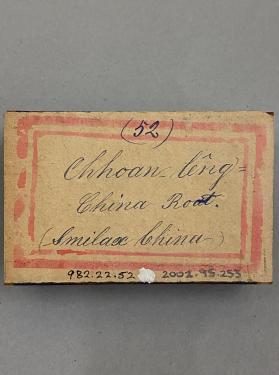 (52)
Chhoan-lêng=
China Root.
(Smilax China)
982.22.52 2002.95.253